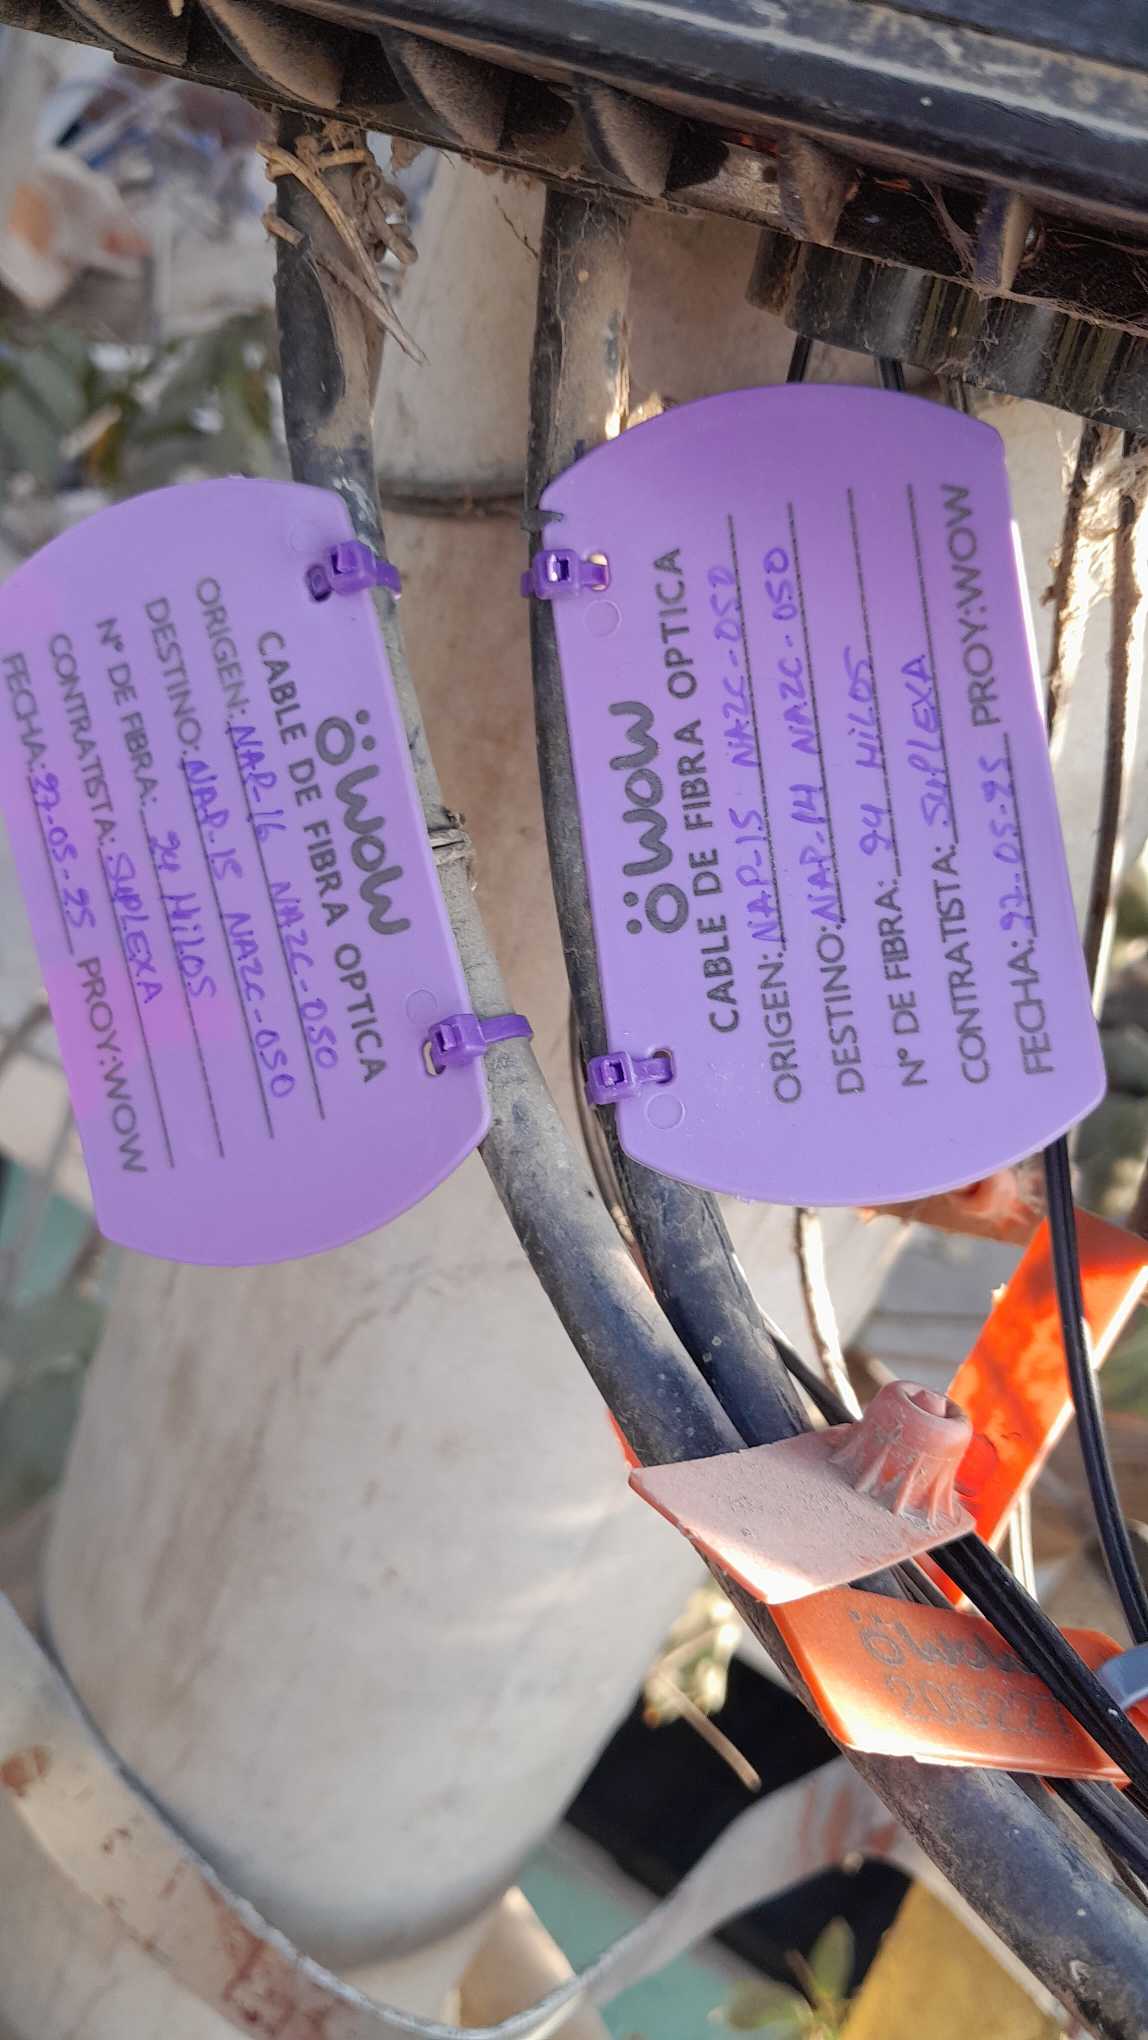 wow
CABLE DE FIBRA OPTICA
ORIGEN: NAP-16 NAZC-050
DESTINO: NAP-15 NAZC-050
N° DE FIBRA: 24 HILOS
CONTRATISTA: SUPLEXA
FECHA: 27-05-25 PROY:WOW
wow
CABLE DE FIBRA OPTICA
ORIGEN: NAP-15 NAZC-050
DESTINO: NAP-14 NAZC-050
N° DE FIBRA: 24 HILOS
CONTRATISTA: SUPLEXA
FECHA: 27-05-25 PROY:WOW
wow